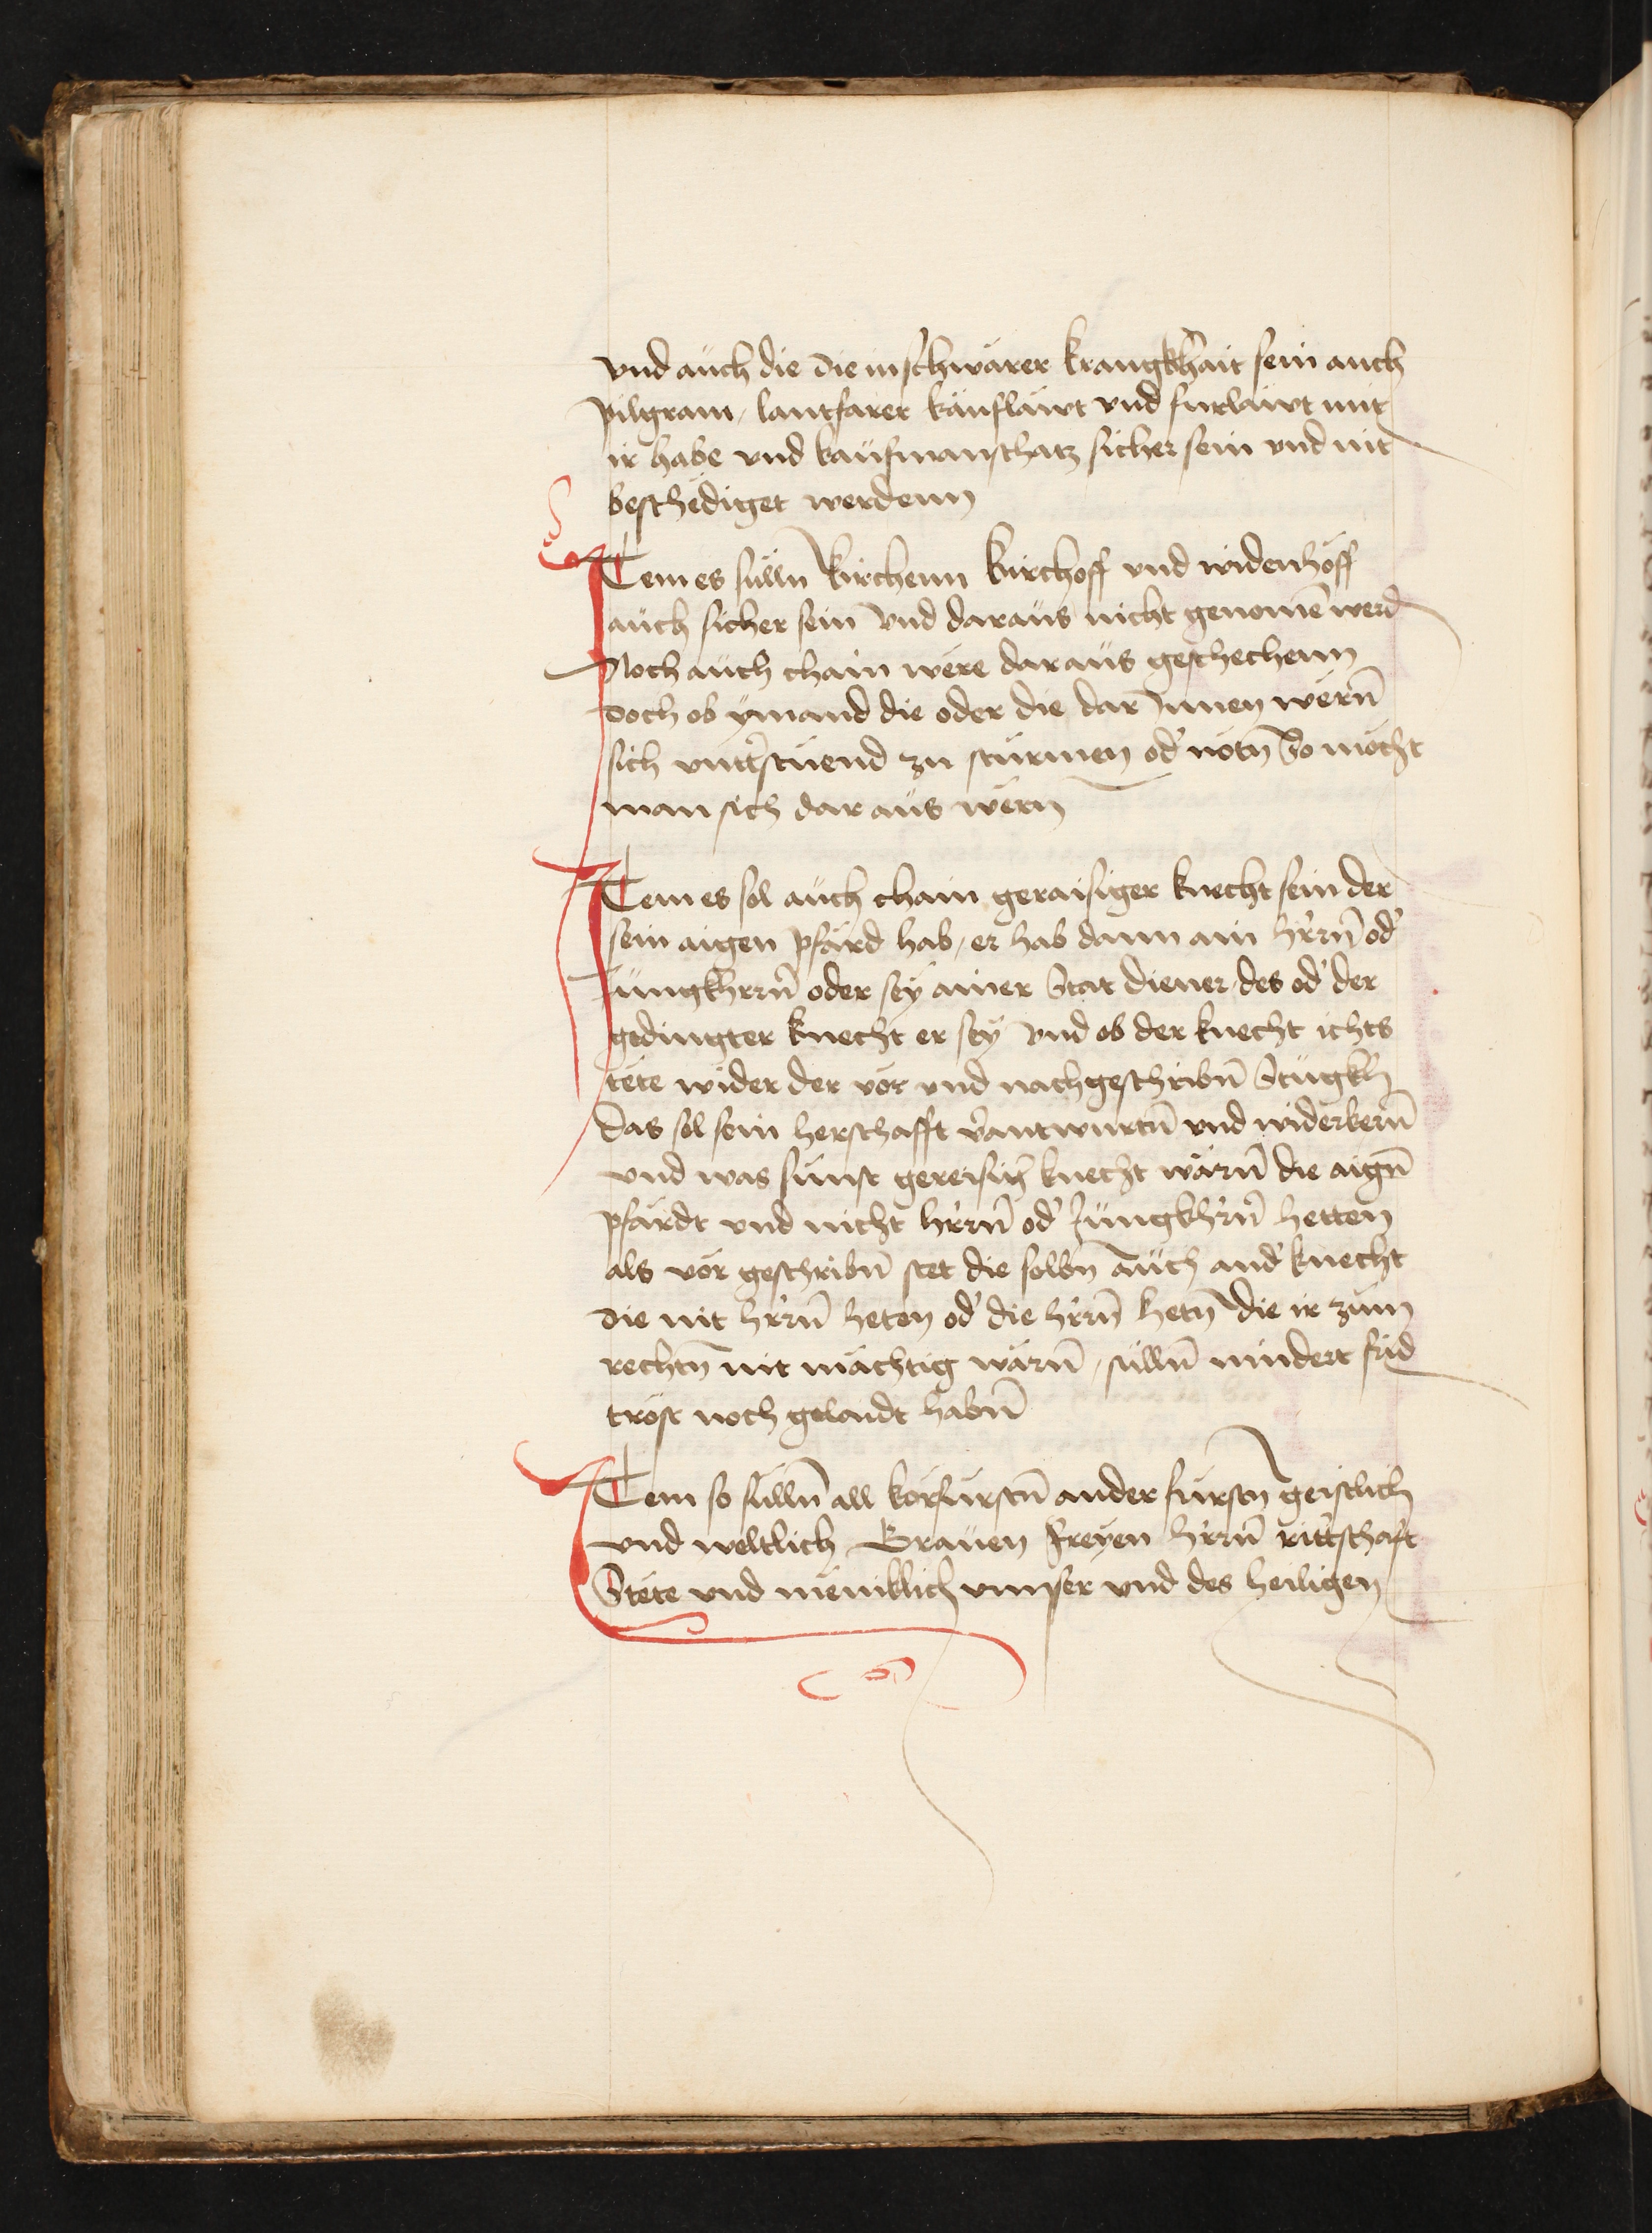 vnd auch die die in schwärer krangkhait sein auch
pilgram, lantfarer kaufläwt vnd furläwt mit
ir habe vnd kaufmanschatz sicher sein vnd nit
beschediget werdenn
Item es sülln kirchenn kirchoff vnd widenhöff
auch sicher sein vnd daraus nicht genomē werd
Noch auch chain were daraus geschechenn
doch ob ymand die oder die dar Innen wern̄
sich vntt̓stuend zu sturmen od̓ nötn̄ So möcht
man sich dar aus wern
Item es sol auch chain geraisiger knecht sein der
sein aigen pfärd hab, er hab dann ain hr̓rn̄ od̓
Jungkhrrn̄ oder sey ainer Stat diener, des od̓ der
gedingter knecht er sey vnd ob der knecht ichts
tete wider der vor vnd nachgeschribn̄ Stügkh
Das sol sein herschafft v̓antwurtn̄ vnd widerkern̄
vnd was sunst gereisig̓ knecht wärn̄ die aign̄
pfärdt vnd nicht hr̓rn̄ od̓ Jungkhr̓rn̄ hetten
als vor geschribn̄ stet die selbn̄ Auch and̓ knecht
die nit hr̓rn̄ heten od̓ die hr̓rn̄ hetn̄ die ir zum
rechtn̄ nit mächtig wärn̄, sülln̄ nindert frid
trost noch gelaidt habn̄
Item so sülln̄ all körfurstn̄ ander fursten geistlich
vnd weltlich Grauen freyen hr̓rn̄ ritt̓schaft
Stete vnd meniklich vnnser vnd des heiligen